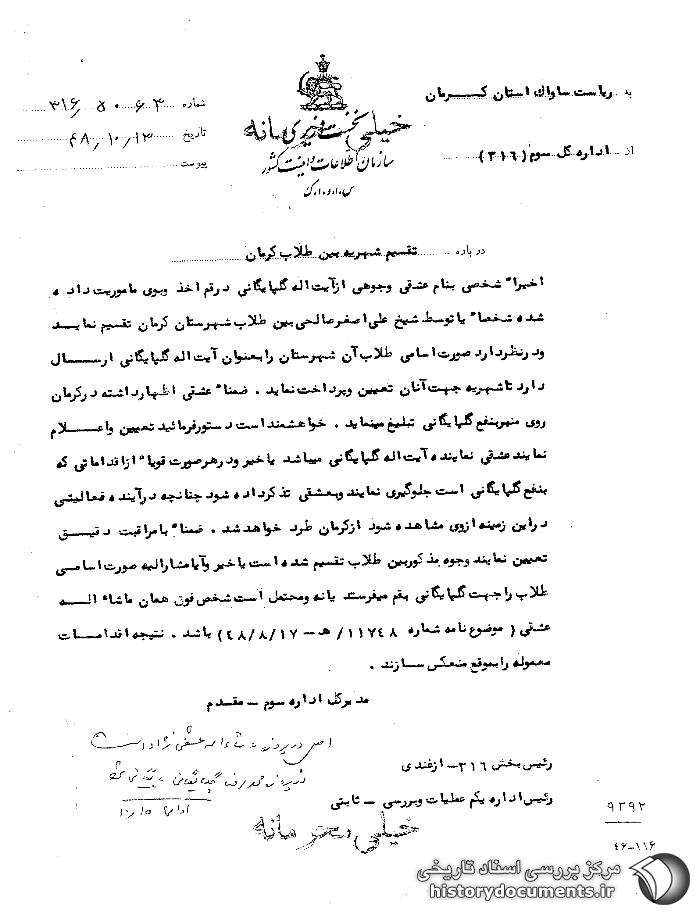 به ریاست ساواك استان کــــرمان
از اداره کل سوم (۳۱۶)
نخست وزیری
خیلی محرمانه
سازمان اطلاعات و امنیت کشور
س.ا.و.ا.ک
شماره ۳۱۶/۵۰۶۳
تاریخ ۴۸/۱۰/۱۳
پیوست
درباره تقسیم شهریه بین طلاب کرمان
اخیرا" شخصی بنام عشقی وجوهی ازآیت اله گلپایگانی درقم اخذ وبوی ماموریت داد ه
شده شخصا" یا توسط شیخ علی اصغرصالحی بین طلاب شهرستان کرمان تقسیم نمایـــد
ودرنظردارد صورت اسامی طلاب آن شهرستان رابعنوان آیت اله گلپایگانی ارســـال
دارد تاشهریه جهت آنان تعیین وپرداخت نماید . ضمنا" عشقی اظهارداشته درکرمان
روی منبربنفع گلپایگانی تبلیغ مینماید . خواهشمنداست دستورفرمائید تعیین واعــلام
نمایند عشقی نماینده آیت اله گلپایگانی میباشد یاخیر ودرهرصورت قویا" ازاقداماتی که
بنفع گلپایگانی است جلوگیری نمایند وبعشقی تذکرداده شود چنانچه درآینده فعالیتی
دراین زمینه ازوی مشاهده شود ازکرمان طرد خواهد شد . ضمنا" بامراقبت دقیــق
تعیین نمایند وجوه مذکوربین طلاب تقسیم شده است یاخیر وآیامشارالیه صورت اسامــی
طلاب راجهت گلپایگانی بقم میفرستد یانه ومحتمل است شخص فوق همان ماشاء الــه
عشقی ( موضوع نامه شماره ۱۱۷۴۸/هـ – ۴۸/۸/۱۷) باشد . نتیجه اقدامـــات
معموله رابموقع منعکس سازند .
مدیرکل اداره سوم – مقدم
رئیس بخش ۳۱۶ – ازغندی
رئیس اداره یکم عملیات وبررسی – ثابتی
خیلی محرمانه
۹۲۹۲
۴۶-۱۱۶
مرکز بررسی اسناد تاریخی
historydocuments.ir